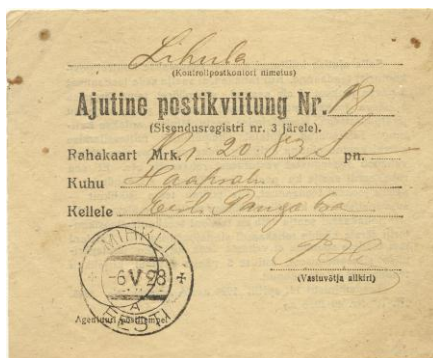 Lihula
(Kontrollpostkontori nimetus)
Ajutine postikviitung Nr. 18
(Sisendusregistri nr. 3 järele).
Rahakaart Mrk. 20 pn.
Kuhu Haapsalu
Kellele Eesti Panga
MIHKLI
-6 V 28
A
EESTI
(Vastuvõtja allkiri)
Agentuuri posttempel